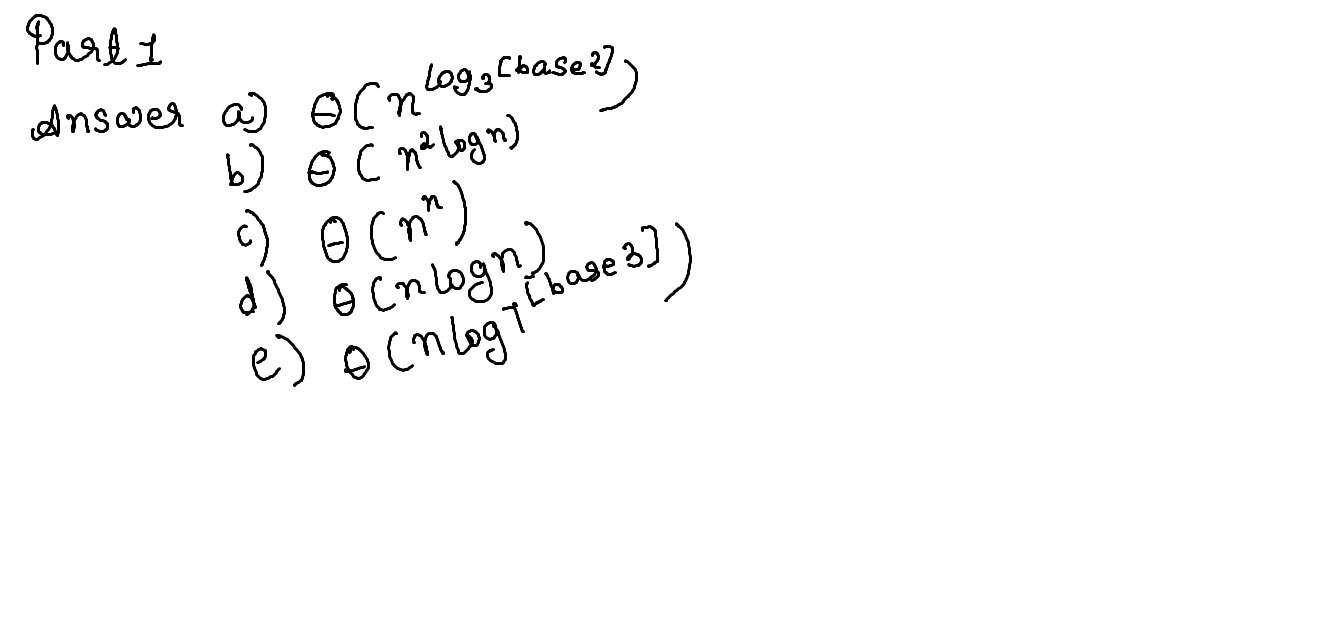 Part 1
Answer a) θ(n^log3[base 2])
b) θ(n² log n)
c) θ(nⁿ)
d) θ(n log n)
e) θ(n log 7 [base 3])